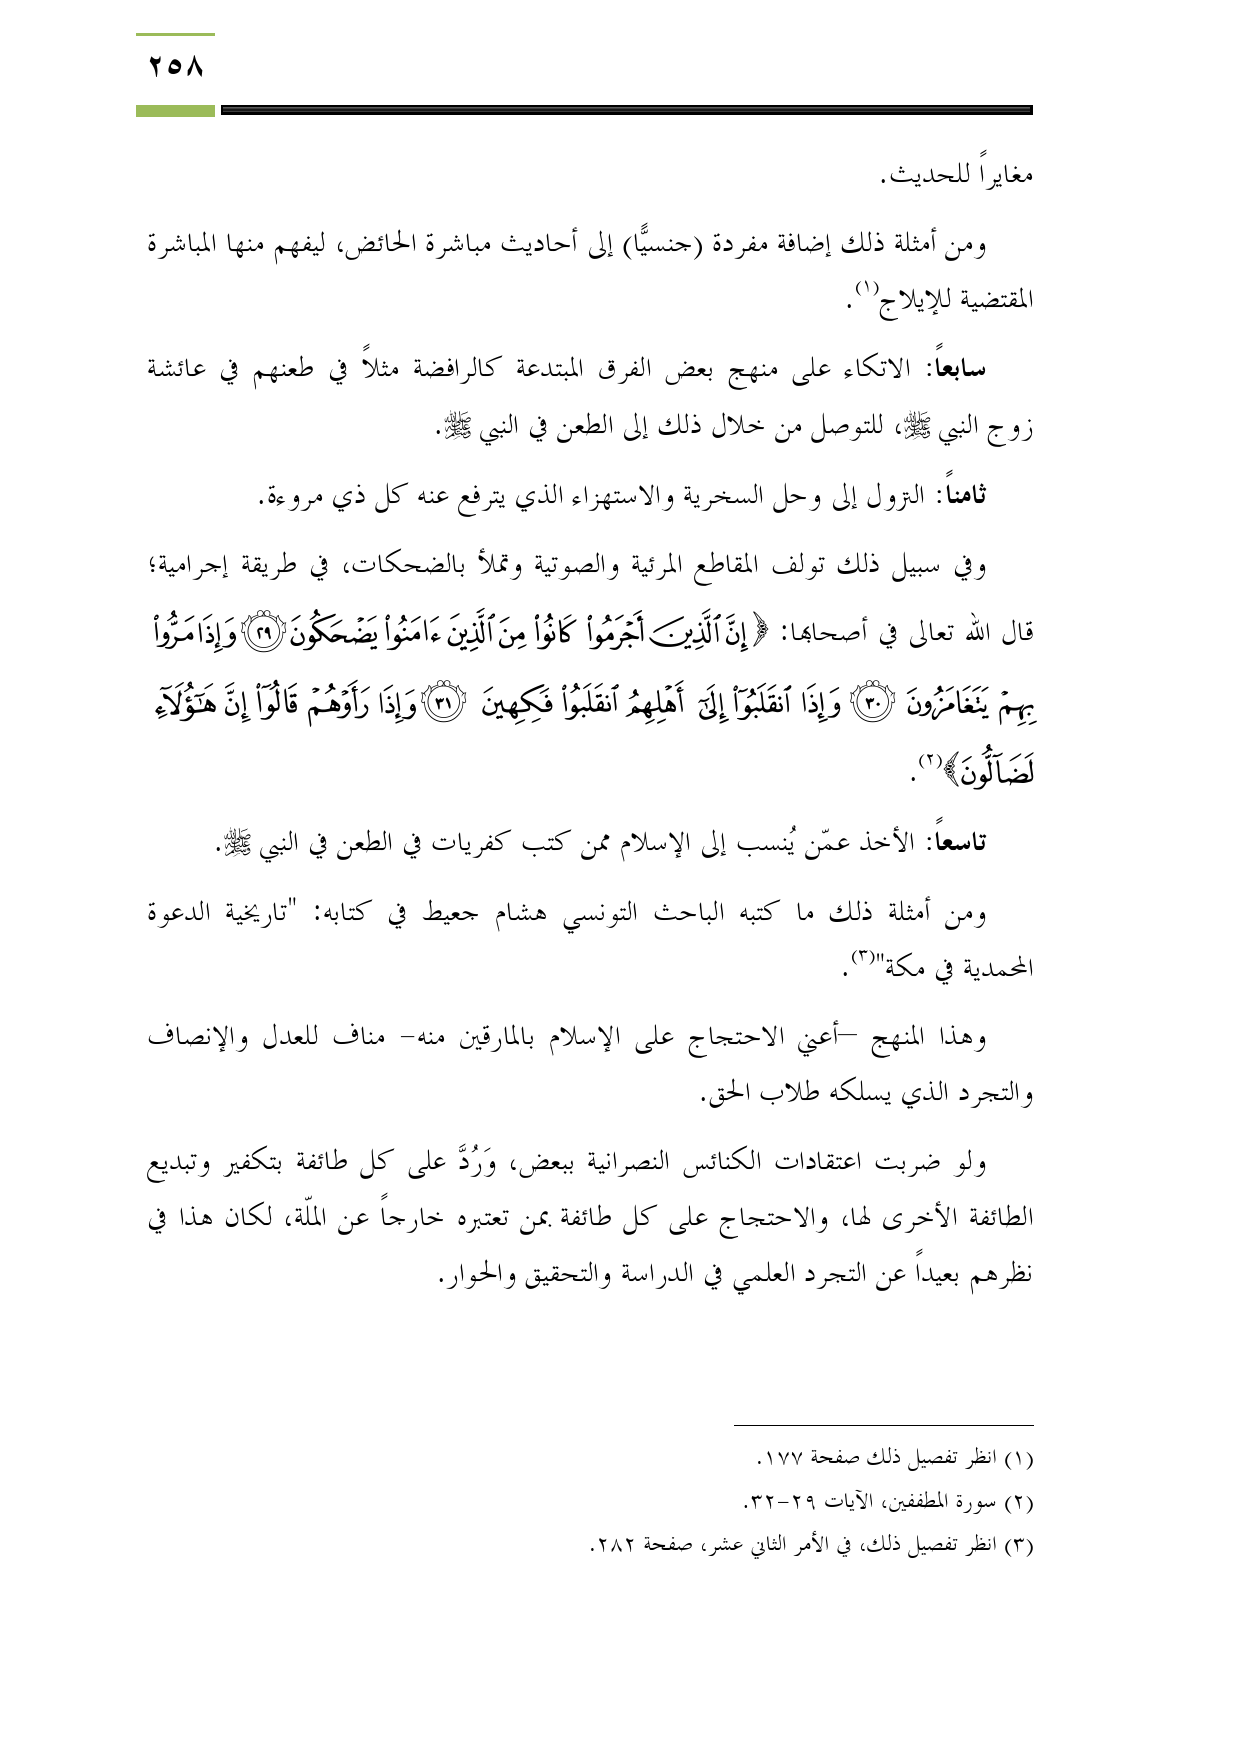 ٢٥٨
مغايراً للحديث.
ومن أمثلة ذلك إضافة مفردة (جنسيًّا) إلى أحاديث مباشرة الحائض، ليفهم منها المباشرة
المقتضية للإيلاج(١).
سابعاً: الاتكاء على منهج بعض الفرق المبتدعة كالرافضة مثلاً في طعنهم في عائشة
زوج النبي ﷺ، للتوصل من خلال ذلك إلى الطعن في النبي ﷺ.
ثامناً: النزول إلى وحل السخرية والاستهزاء الذي يترفع عنه كل ذي مروءة.
وفي سبيل ذلك تولف المقاطع المرئية والصوتية وتملأ بالضحكات، في طريقة إجرامية؛
قال الله تعالى في أصحابها: ﴿إِنَّ ٱلَّذِينَ أَجۡرَمُواْ كَانُواْ مِنَ ٱلَّذِينَ ءَامَنُواْ يَضۡحَكُونَ ٢٩ وَإِذَا مَرُّواْ
بِهِمۡ يَتَغَامَزُونَ ٣٠ وَإِذَا ٱنقَلَبُوٓاْ إِلَىٰٓ أَهۡلِهِمُ ٱنقَلَبُواْ فَكِهِينَ ٣١ وَإِذَا رَأَوۡهُمۡ قَالُوٓاْ إِنَّ هَٰٓؤُلَآءِ
لَضَآلُّونَ﴾(٢).
تاسعاً: الأخذ عمّن يُنسب إلى الإسلام ممن كتب كفريات في الطعن في النبي ﷺ.
ومن أمثلة ذلك ما كتبه الباحث التونسي هشام جعيط في كتابه: "تاريخية الدعوة
المحمدية في مكة"(٣).
وهذا المنهج –أعني الاحتجاج على الإسلام بالمارقين منه– مناف للعدل والإنصاف
والتجرد الذي يسلكه طلاب الحق.
ولو ضربت اعتقادات الكنائس النصرانية ببعض، وَرُدَّ على كل طائفة بتكفير وتبديع
الطائفة الأخرى لها، والاحتجاج على كل طائفة بمن تعتبره خارجاً عن الملّة، لكان هذا في
نظرهم بعيداً عن التجرد العلمي في الدراسة والتحقيق والحوار.
(١) انظر تفصيل ذلك صفحة ١٧٧.
(٢) سورة المطففين، الآيات ٢٩-٣٢.
(٣) انظر تفصيل ذلك، في الأمر الثاني عشر، صفحة ٢٨٢.